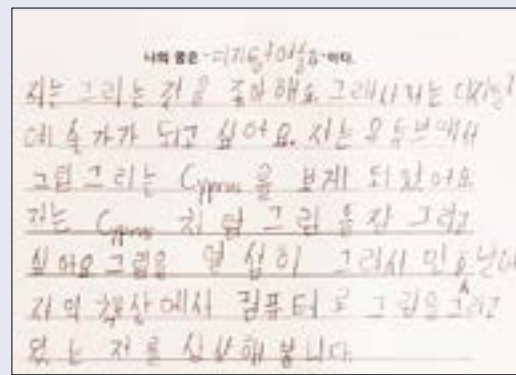 나의 꿈은 -디지탈 아-이다.
저는 그리는 것을 좋아해요 그래서 저는 디지탈
예술가가 되고 싶어요. 저는 유튜브에서
그림그리는 Cyprus을 보게 되었어요
저는 Cyprus 처럼 그림을 잘 그리고
싶어요 그림을 열심히 그려서
저의 책상에서 컴퓨터로 그림을 그리고
있는 저를 상상해 봅니다.